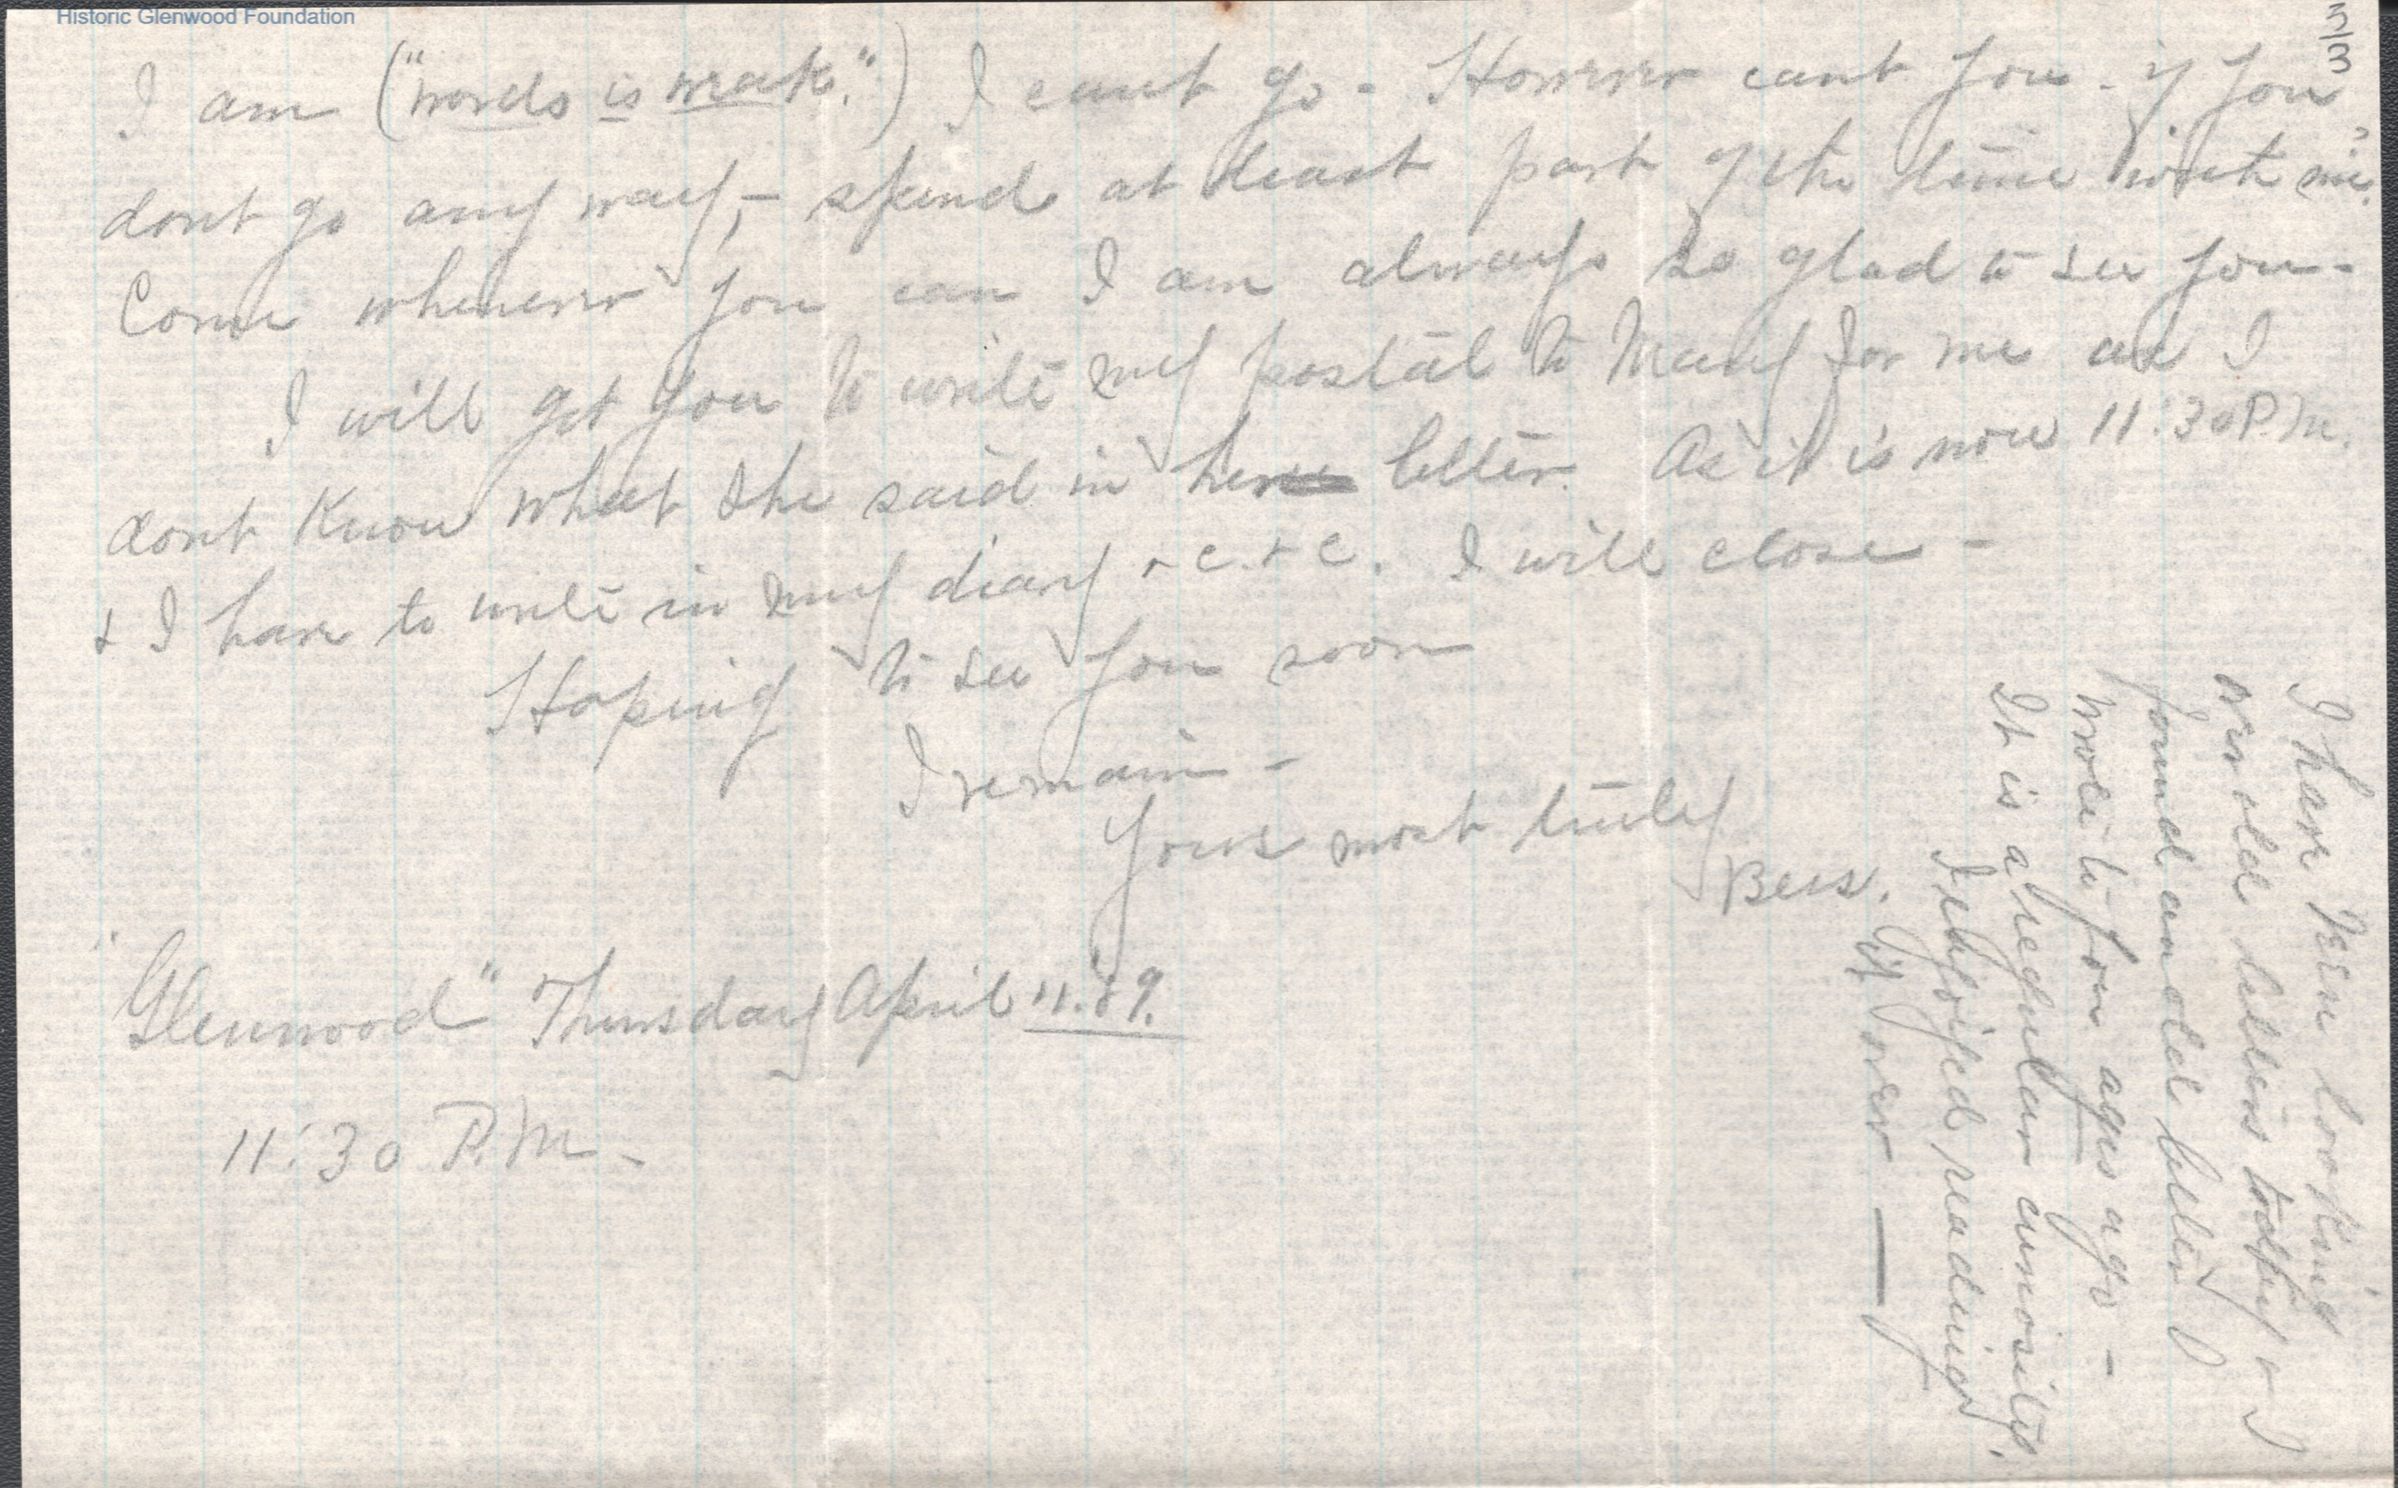 Historic Glenwood Foundation
3/3
I am ("words is weak.") I cant go - However cant you - if you
dont go any way, - spend at least part of the time with me?
Come whenever you can I am always so glad to see you -
I will get you to write my postal to Mary for me as I
dont know what she said in her letter. As it is now 11:30 P.M.
& I have to write in my diary &c. &c. I will close -
Hoping to see you soon
I remain -
Yours most truly
Bess.
"Glenwood" Thursday April 11. 89.
11:30 P.M. -
I have been looking
over old letters today & I
found an old letter I
wrote to you ages ago -
It is a regular curiosity.
I enjoyed reading
it over —